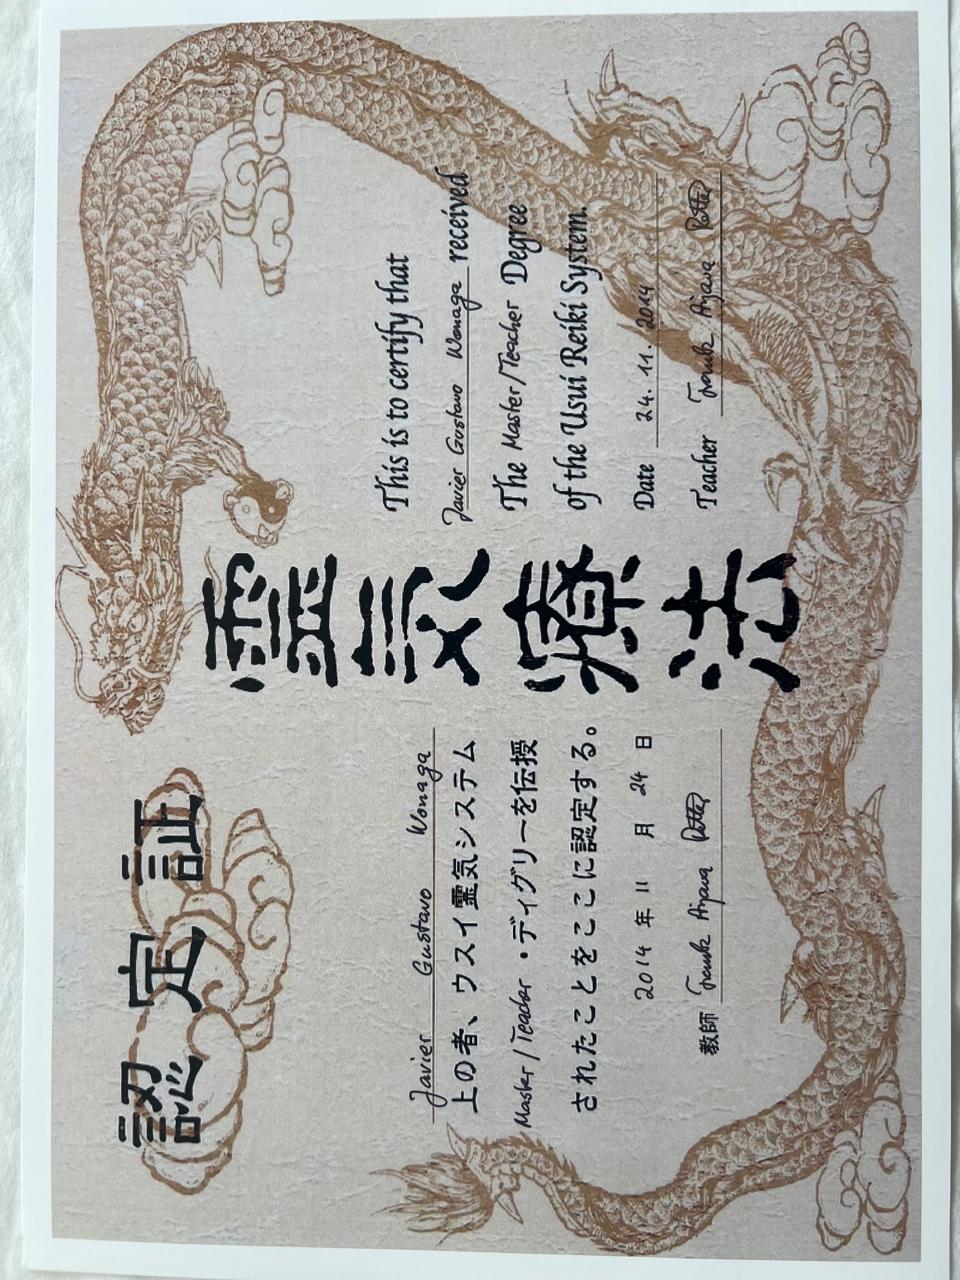 認定証
Javier Gustavo Wonaga
上の者、ウスイ靈気システム
Master/Teacher・ディグリーを伝授
されたことをここに認定する。
2014年11月24日
教師 Frank Arjava Petter
靈気療法
This is to certify that
Javier Gustavo Wonaga received
The Master/Teacher Degree
of the Usui Reiki System.
Date 24.11.2014
Teacher Frank Arjava Petter